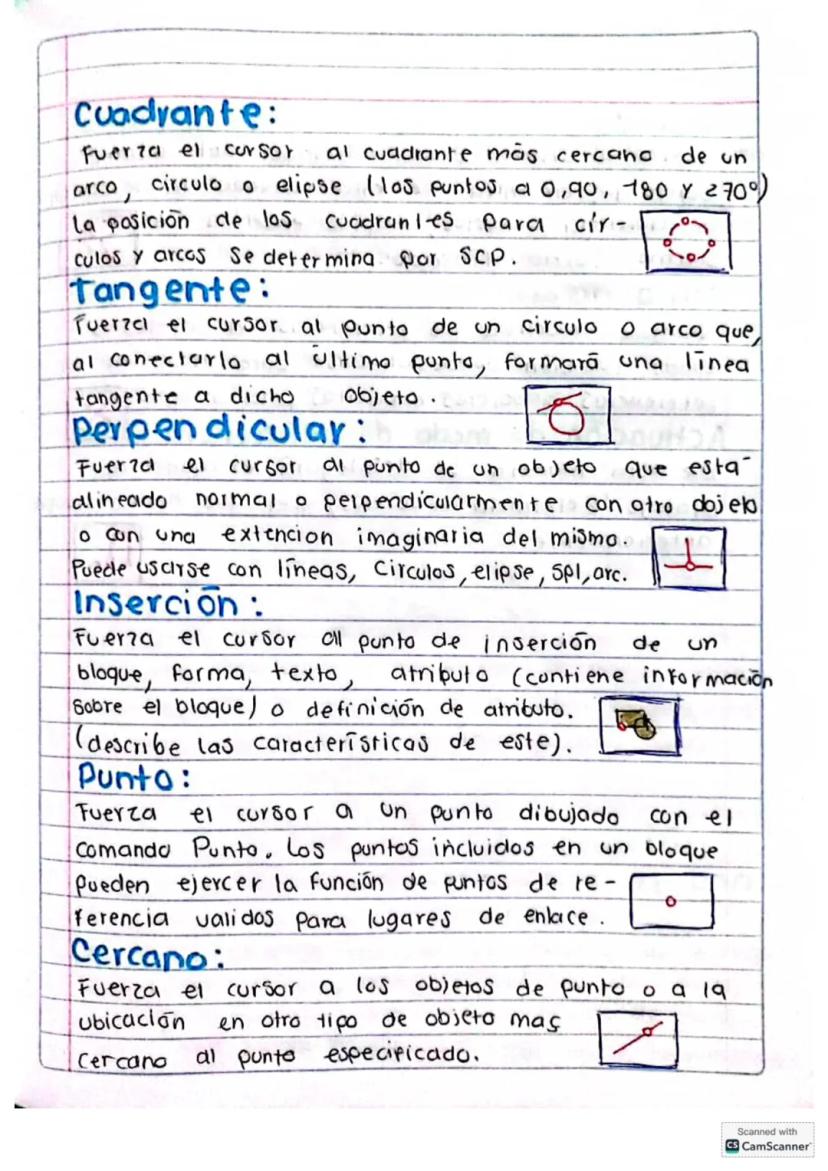 Cuadrante:
Fuerza el cursor al cuadrante más cercano de un
arco, circulo o elipse (los puntos a 0,90, 180 y 270°)
La posición de los cuadrantes para cír-
culos y arcos se determina por SCP.
Tangente:
Fuerza el cursor al punto de un circulo o arco que,
al conectarlo al último punto, formará una línea
tangente a dicho objeto.
Perpendicular:
Fuerza el cursor al punto de un objeto que está
alineado normal o perpendicularmente con otro objeto
o con una extencion imaginaria del mismo.
Puede usarse con líneas, Circulos, elipse, spl, arc.
Inserción:
Fuerza el cursor al punto de inserción de un
bloque, forma, texto, atributo (contiene información
sobre el bloque) o definición de atributo.
(describe las características de este).
Punto:
Fuerza el cursor a un punto dibujado con el
comando Punto. Los puntos incluidos en un bloque
pueden ejercer la función de puntos de re-
ferencia validos para lugares de enlace.
Cercano:
Fuerza el cursor a los objetos de punto o a la
ubicación en otro tipo de objeto mas
cercano al punto especificado.
Scanned with
CS CamScanner